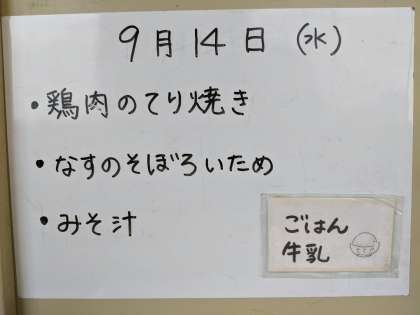 9月14日(水)
・鶏肉のてり焼き
・なすのそぼろいため
・みそ汁
ごはん
牛乳